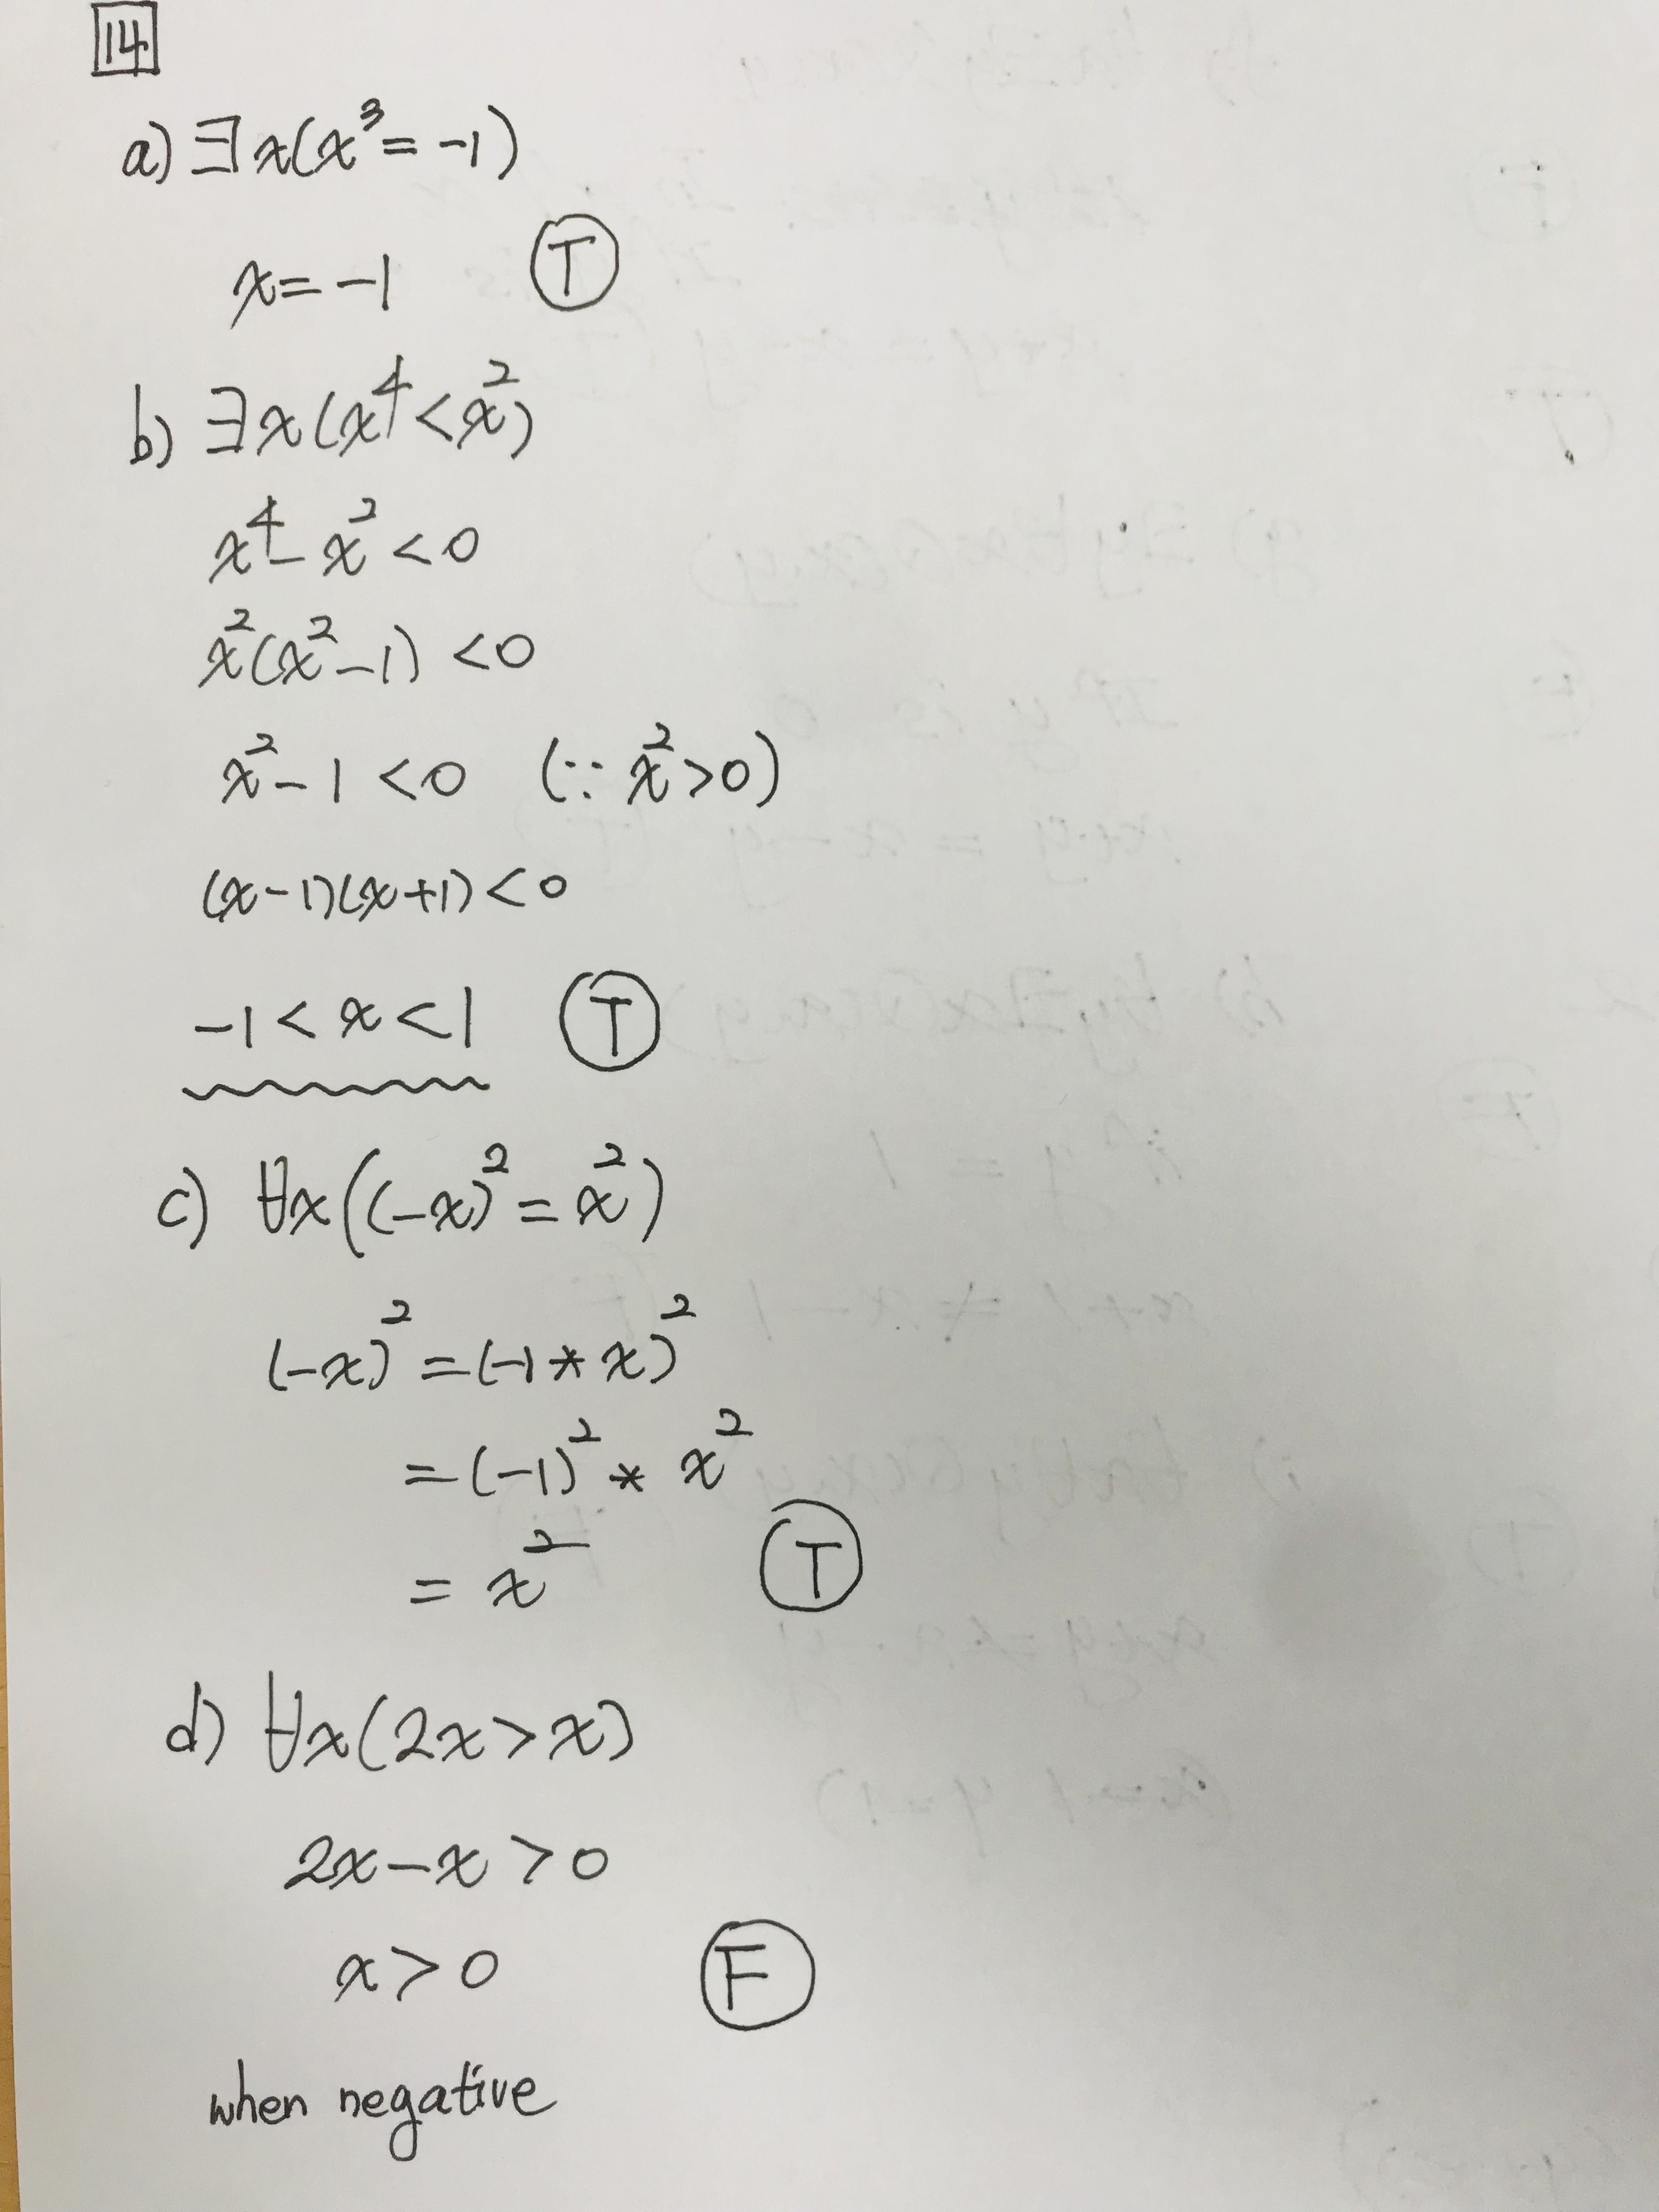 14
a) ∃x(x³ = -1)
x = -1 T
b) ∃x(x⁴ < x²)
x⁴ - x² < 0
x²(x² - 1) < 0
x² - 1 < 0 (∵ x² > 0)
(x-1)(x+1) < 0
-1 < x < 1 T
c) ∀x((-x)² = x²)
(-x)² = (-1 * x)²
= (-1)² * x²
= x² T
d) ∀x(2x > x)
2x - x > 0
x > 0 F
when negative